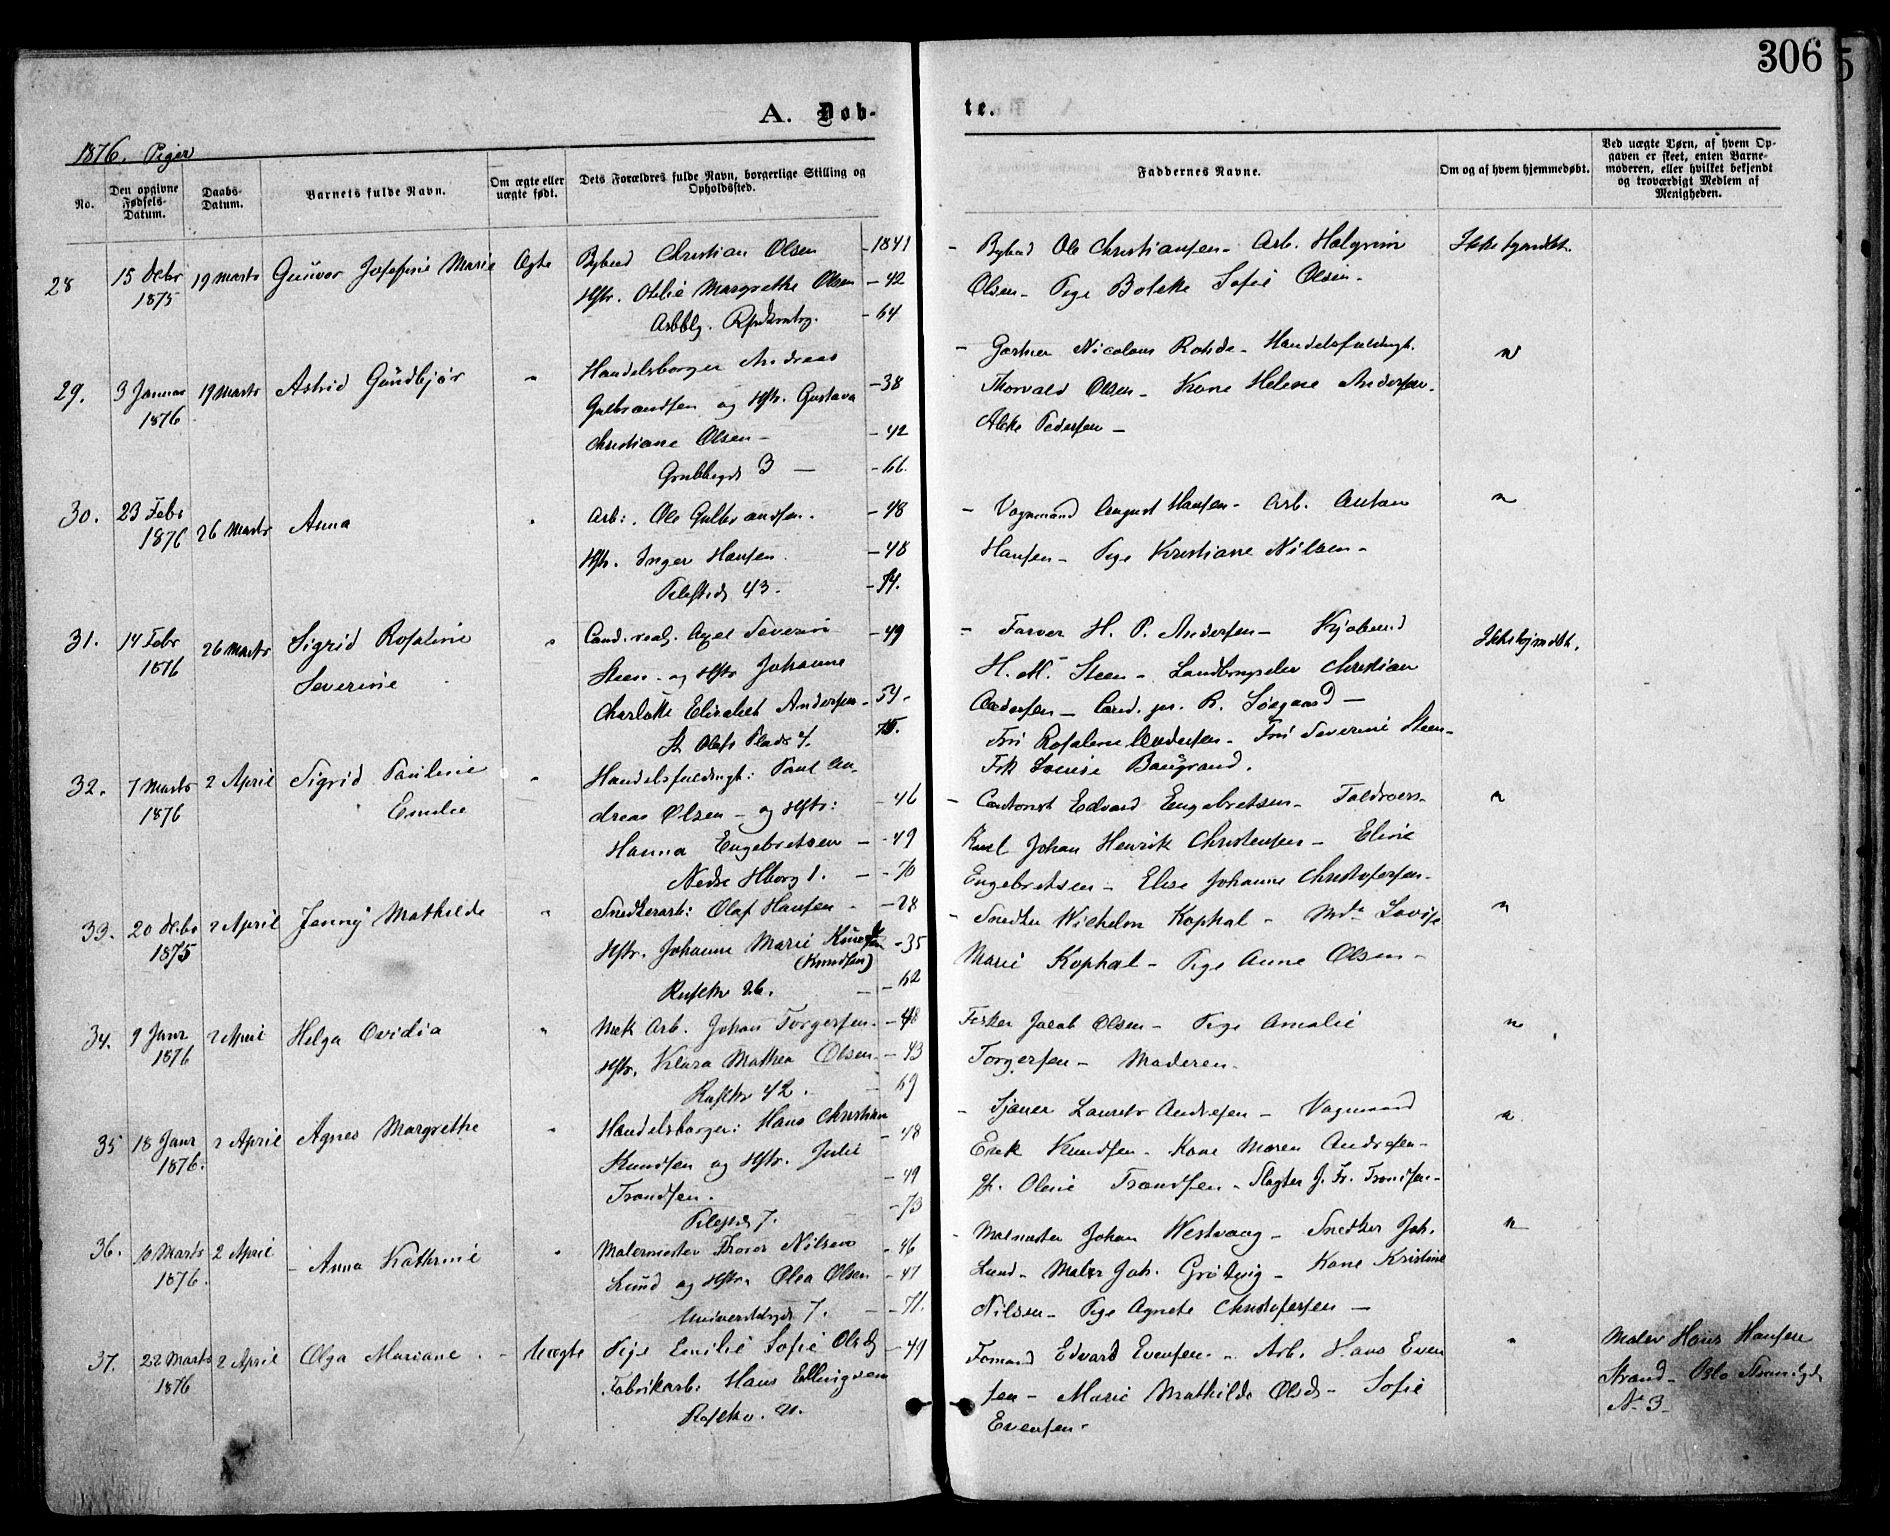 306
A. Døb-
te.
1876. Piger
No.
Den opgivne Fødsels-Datum.
Daabs-Datum.
Barnets fulde Navn.
Om ægte eller uægte født.
Dets Forældres fulde Navn, borgerlige Stilling og Opholdssted.
Faddernes Navne.
Om og af hvem hjemmedøbt.
Ved uægte Børn, af hvem Opgaven er skeet, enten Barnemoderen, eller hvilket bekjendt og troværdigt Medlem af Menigheden.
28 15 Debr 1875 19 Marts Gunvor Josefine Marie Ægte
Bybud Christian Olsen - 1841
Hstr. Otilie Margrethe Olsen - 42
- 64
- Bybud Ole Christiansen - Arb. Halgrim
Olsen - Pige Bolette Sofie Olsen -
29. 3 Januar 1876 19 Marts Astrid Gundbjør "
Handelsborger Andreas
Gulbrandsen og Hstr. Gustava - 38
Christiane Olsen - - 42
Grubbegd 3 - - 66.
- Gartner Nicolaus Rohde - Handelsfuldmgt.
Thorvald Olsen - Kone Helene Andersen -
Pedersen -
"
30. 23 Febr 1876 26 Marts Anna "
Arb: Ole Gulbrandsen. - 48
Hstr. Inger Hansen. - 48
Pilestrd 43. - 74.
- Vognmand August Hansen - Arb. Anton
Hansen - Pige Kristiane Nilsen -
"
31. 14 Febr 1876 26 Marts Sigrid Rosaline
Severine "
Cand. real. Axel Severin - 49
Steen - og Hstr Johanne
Charlotte Elisabet Andersen - 54 -
St Olafs Plads 7. 75.
- Farver H. P. Andersen - Kjøbmd
H. M. Steen - Landbrugselev Christian
Andersen - Cand. jur. R. Søegaard -
Fru Rosaline Andersen - Fru Severine Steen -
Frk Louise Baugrand.
32. 7 Marts 1876 2 April Sigrid Pauline
Emilie "
Handelsfuldmgt: Paul An-
dreas Olsen - og Hstr: - 46
Hanna Engebretsen - - 49
Nedre Hborg 1. - - 70
- Contorist Edvard Engebretsen -
Johan Henrik Christensen - Eline
Engebretsen - Elise Johanne Christofersen -
"
33. 20 Debr 1875 2 April Jenny Mathilde "
Snedkerarb: Olaf Hansen - - 28
Hstr. Johanne Marie - 35
(Knudsen)
26. - - 62
- Snedker Wilhelm Kophal - Lovise
Marie Kophal - Pige Anne Olsen -
"
34. 9 Janr 1876 2 April Helga Ovidia "
Mek Arb. Johan Torgersen - - 48
Hstr. Klara Mathea Olsen - - 43
42. - 69
Fisker Jacob Olsen - Pige Amalie
Torgersen - Moderen -
"
35 18 Janr 1876. 2 April Agnes Margrethe "
Handelsborger: Hans Christian
Knudsen og Hstr. Julie - 48
Trondsen. - 49
Pilestrd 7. - 73
- Sjouer Laurits Andresen - Vognmand
Erik Knudsen - Kone Maren Andresen -
Olene Trondsen - Slagter J. Fr. Trondsen -
"
36. 10 Marts 1876. 2 April - Anna Kathrine "
Malermester Thorer Nilsen - 46
Lund og Hstr. Olea Olsen - 47
Universitetsgd 7. - - 71.
- Malmester Johan Westvaag - Snedker Joh.
Lund - Maler Joh. Grötvig - Kone Kristine
Nilsen - Pige Agnete Christofersen -
"
37. 22 Marts 1876 2 April Olga Mariane. - Uægte
Pige Emilie Sofie Olsdg - 49
Fabrikarb: Hans Ellingsen
Formand Edvard Evensen - Arb. Hans Even
sen - Marie Mathilde Olsd - Sofie
Evensen -
"
Maler Hans Hansen
Strand - Oslo
No 3 -